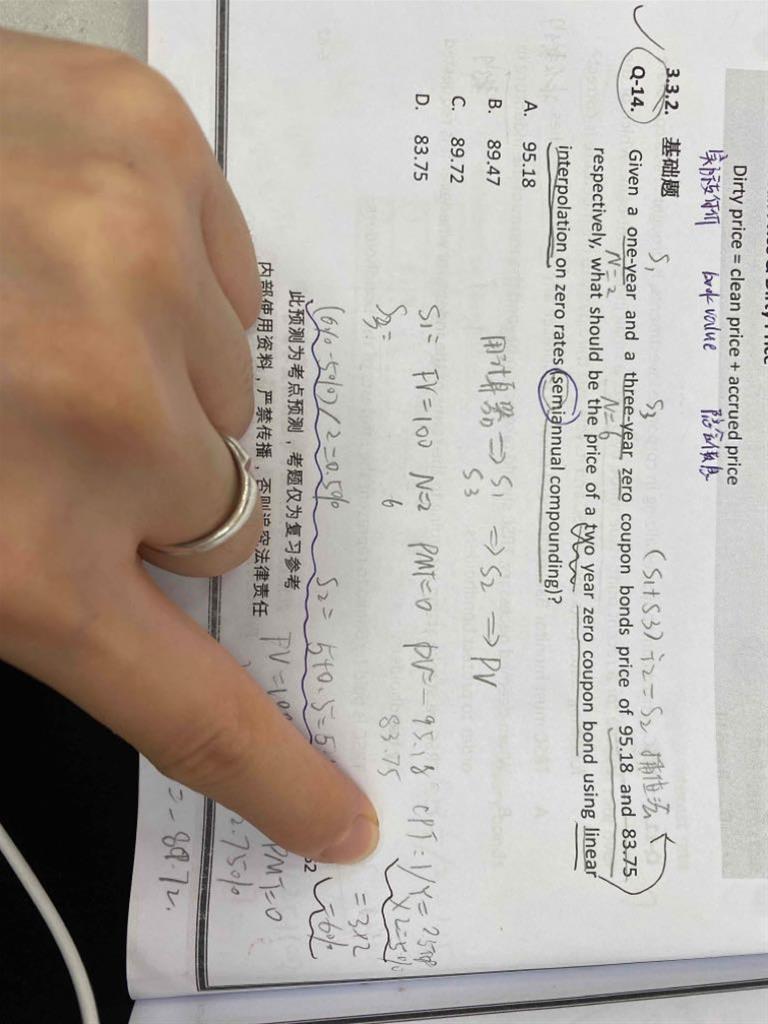 Dirty price = clean price + accrued price
book value
3.3.2. 基础题
S₁ S₃ (S₁+S₃)÷2=S₂ 插值法
Q-14. Given a one-year and a three-year zero coupon bonds price of 95.18 and 83.75
N=2 N=6
respectively, what should be the price of a two year zero coupon bond using linear
interpolation on zero rates (semiannual compounding)?
A. 95.18
B. 89.47
C. 89.72
D. 83.75
用计算器 ⇒ S₁ ⇒ S₂ ⇒ PV
S₃
S₁= FV=100 N=2 PMT=0 PV=-95.18 CPT: I/Y=
S₃= 6 83.75 ×2=5%
=3×2
=6%
(6%-5%)/2=0.5% S₂= 5+0.5=5.
此预测为考点预测，考题仅为复习参考
内部使用资料，严禁传播，否则追究法律责任
PMT=0
2.75%
=-89.72.